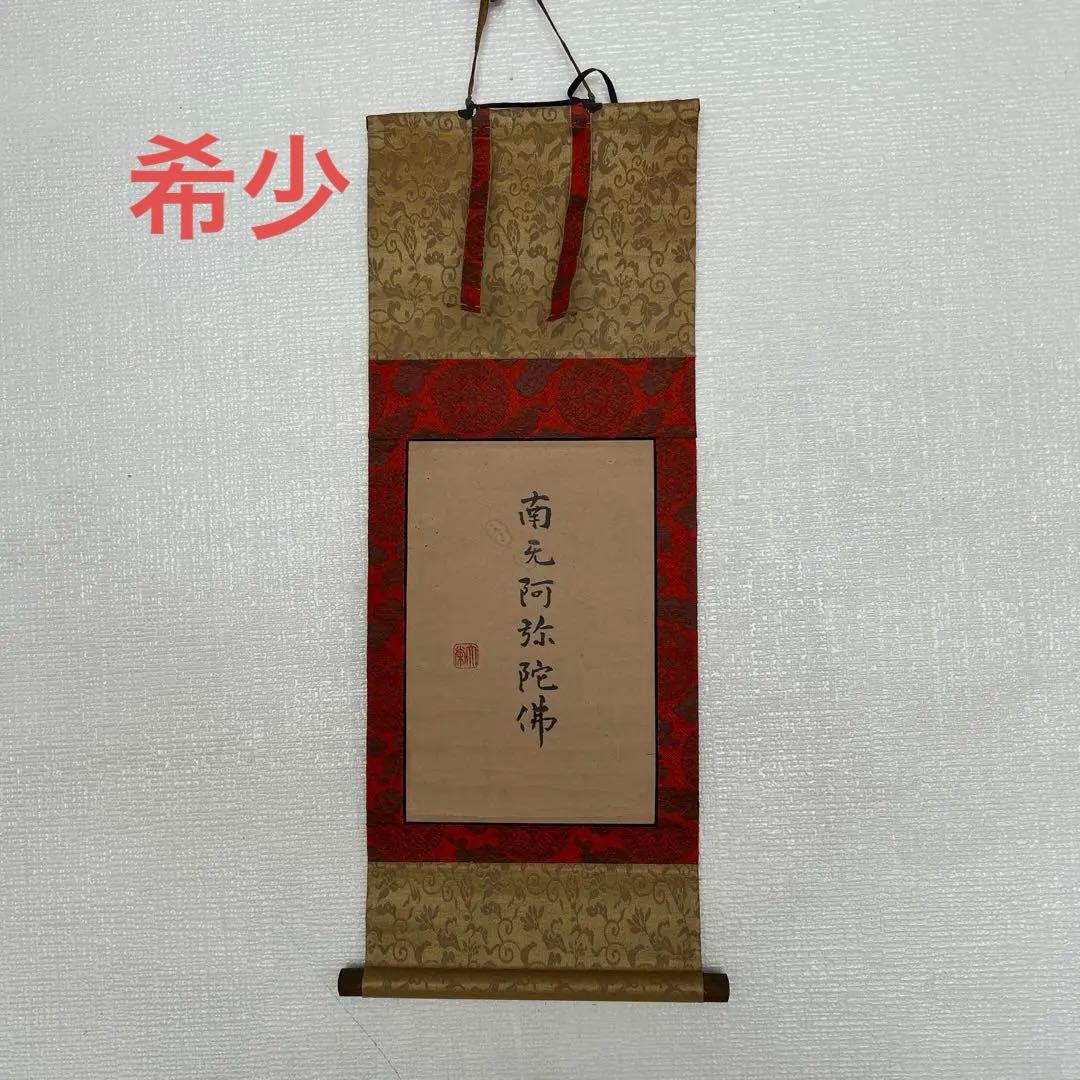 希少
南无阿弥陀佛